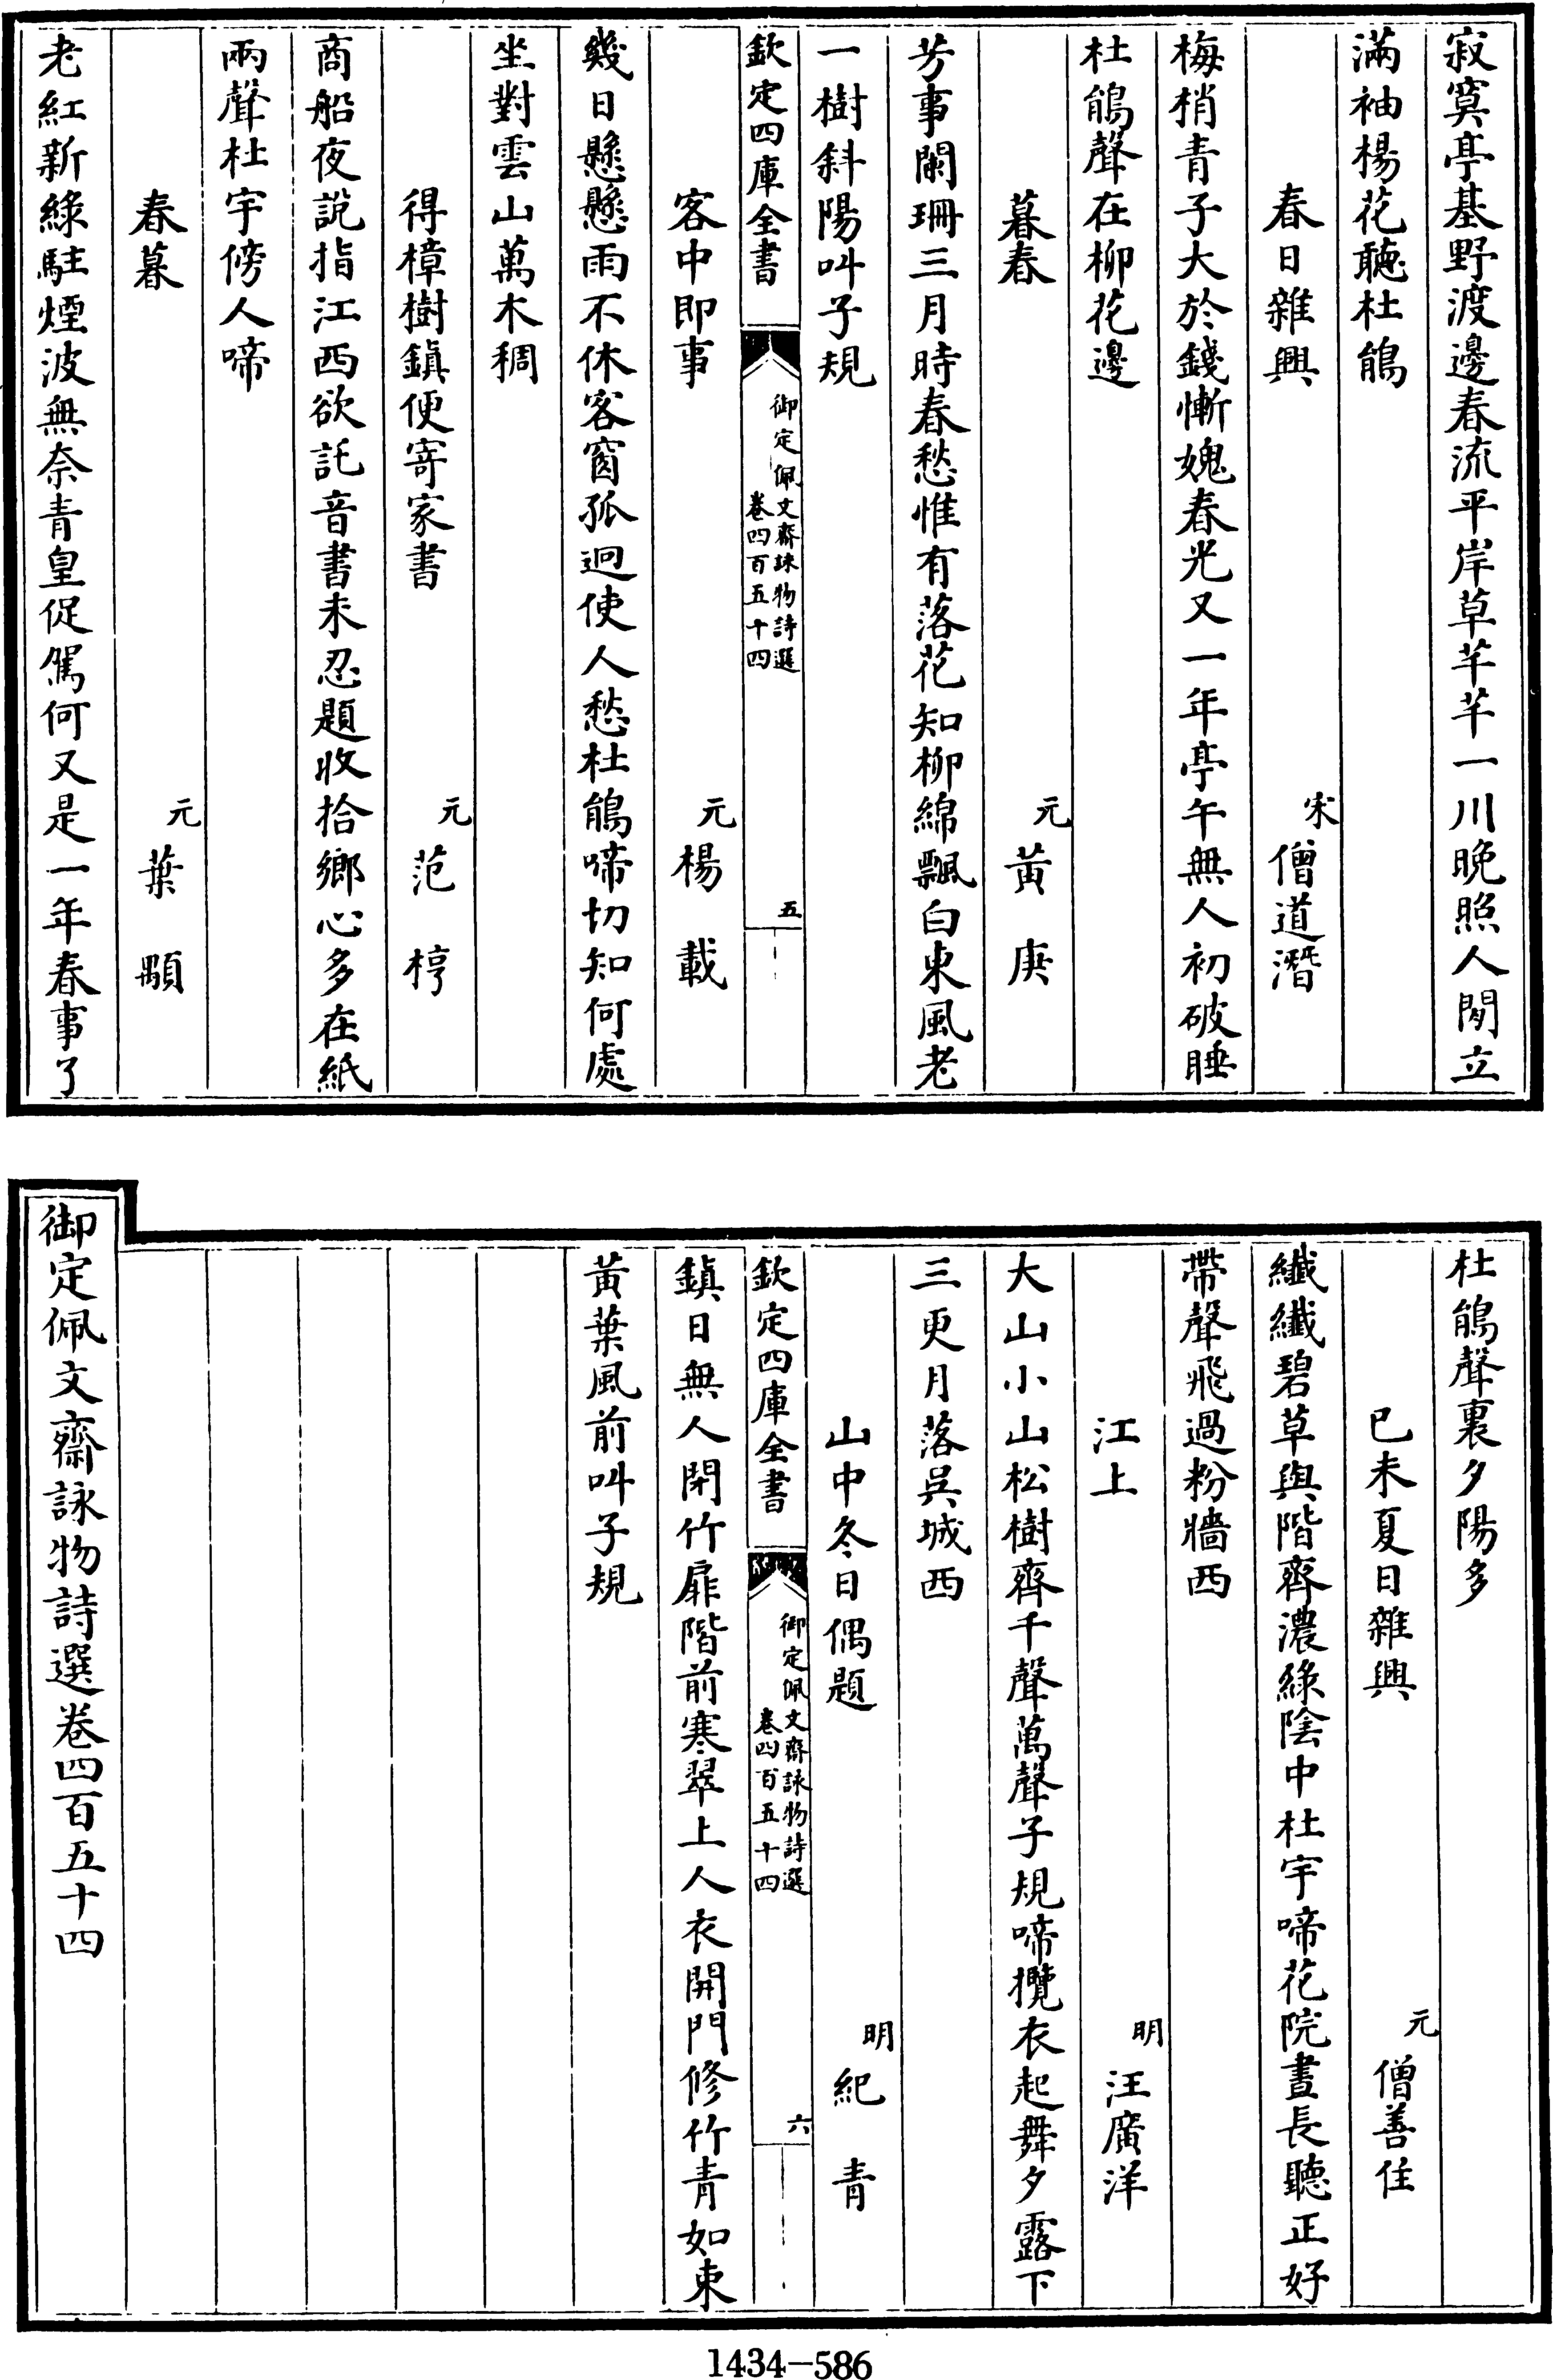 寂寞亭基野渡邊春流平岸草芊芊一川晚照人閒立
滿袖楊花聽杜鵑
春日雜興
宋
僧道潛
梅梢青子大於錢慚媿春光又一年亭午無人初破睡
杜鵑聲在柳花邊
暮春
元
黃庚
芳事闌珊三月時春愁惟有落花知柳綿飄白東風老
一樹斜陽叫子規
欽定四庫全書
御定佩文齋詠物詩選
卷四百五十四
五
客中即事
元
楊載
幾日懸懸雨不休客窗孤迥使人愁杜鵑啼切知何處
坐對雲山萬木稠
得樟樹鎮便寄家書
元
范梈
商船夜説指江西欲託音書未忍題收拾鄉心多在紙
兩聲杜宇傍人啼
春暮
元
葉顒
老紅新綠駐煙波無奈青皇促駕何又是一年春事了
杜鵑聲裏夕陽多
已未夏日雜興
元
僧善住
纖纖碧草與階齊濃綠陰中杜宇啼花院晝長聽正好
帶聲飛過粉牆西
江上
明
汪廣洋
大山小山松樹齊千聲萬聲子規啼攬衣起舞夕露下
三更月落吳城西
山中冬日偶題
明
紀青
欽定四庫全書
御定佩文齋詠物詩選
卷四百五十四
六
鎮日無人閉竹扉階前寒翠上人衣開門修竹青如束
黃葉風前叫子規
御定佩文齋詠物詩選卷四百五十四
1434-586